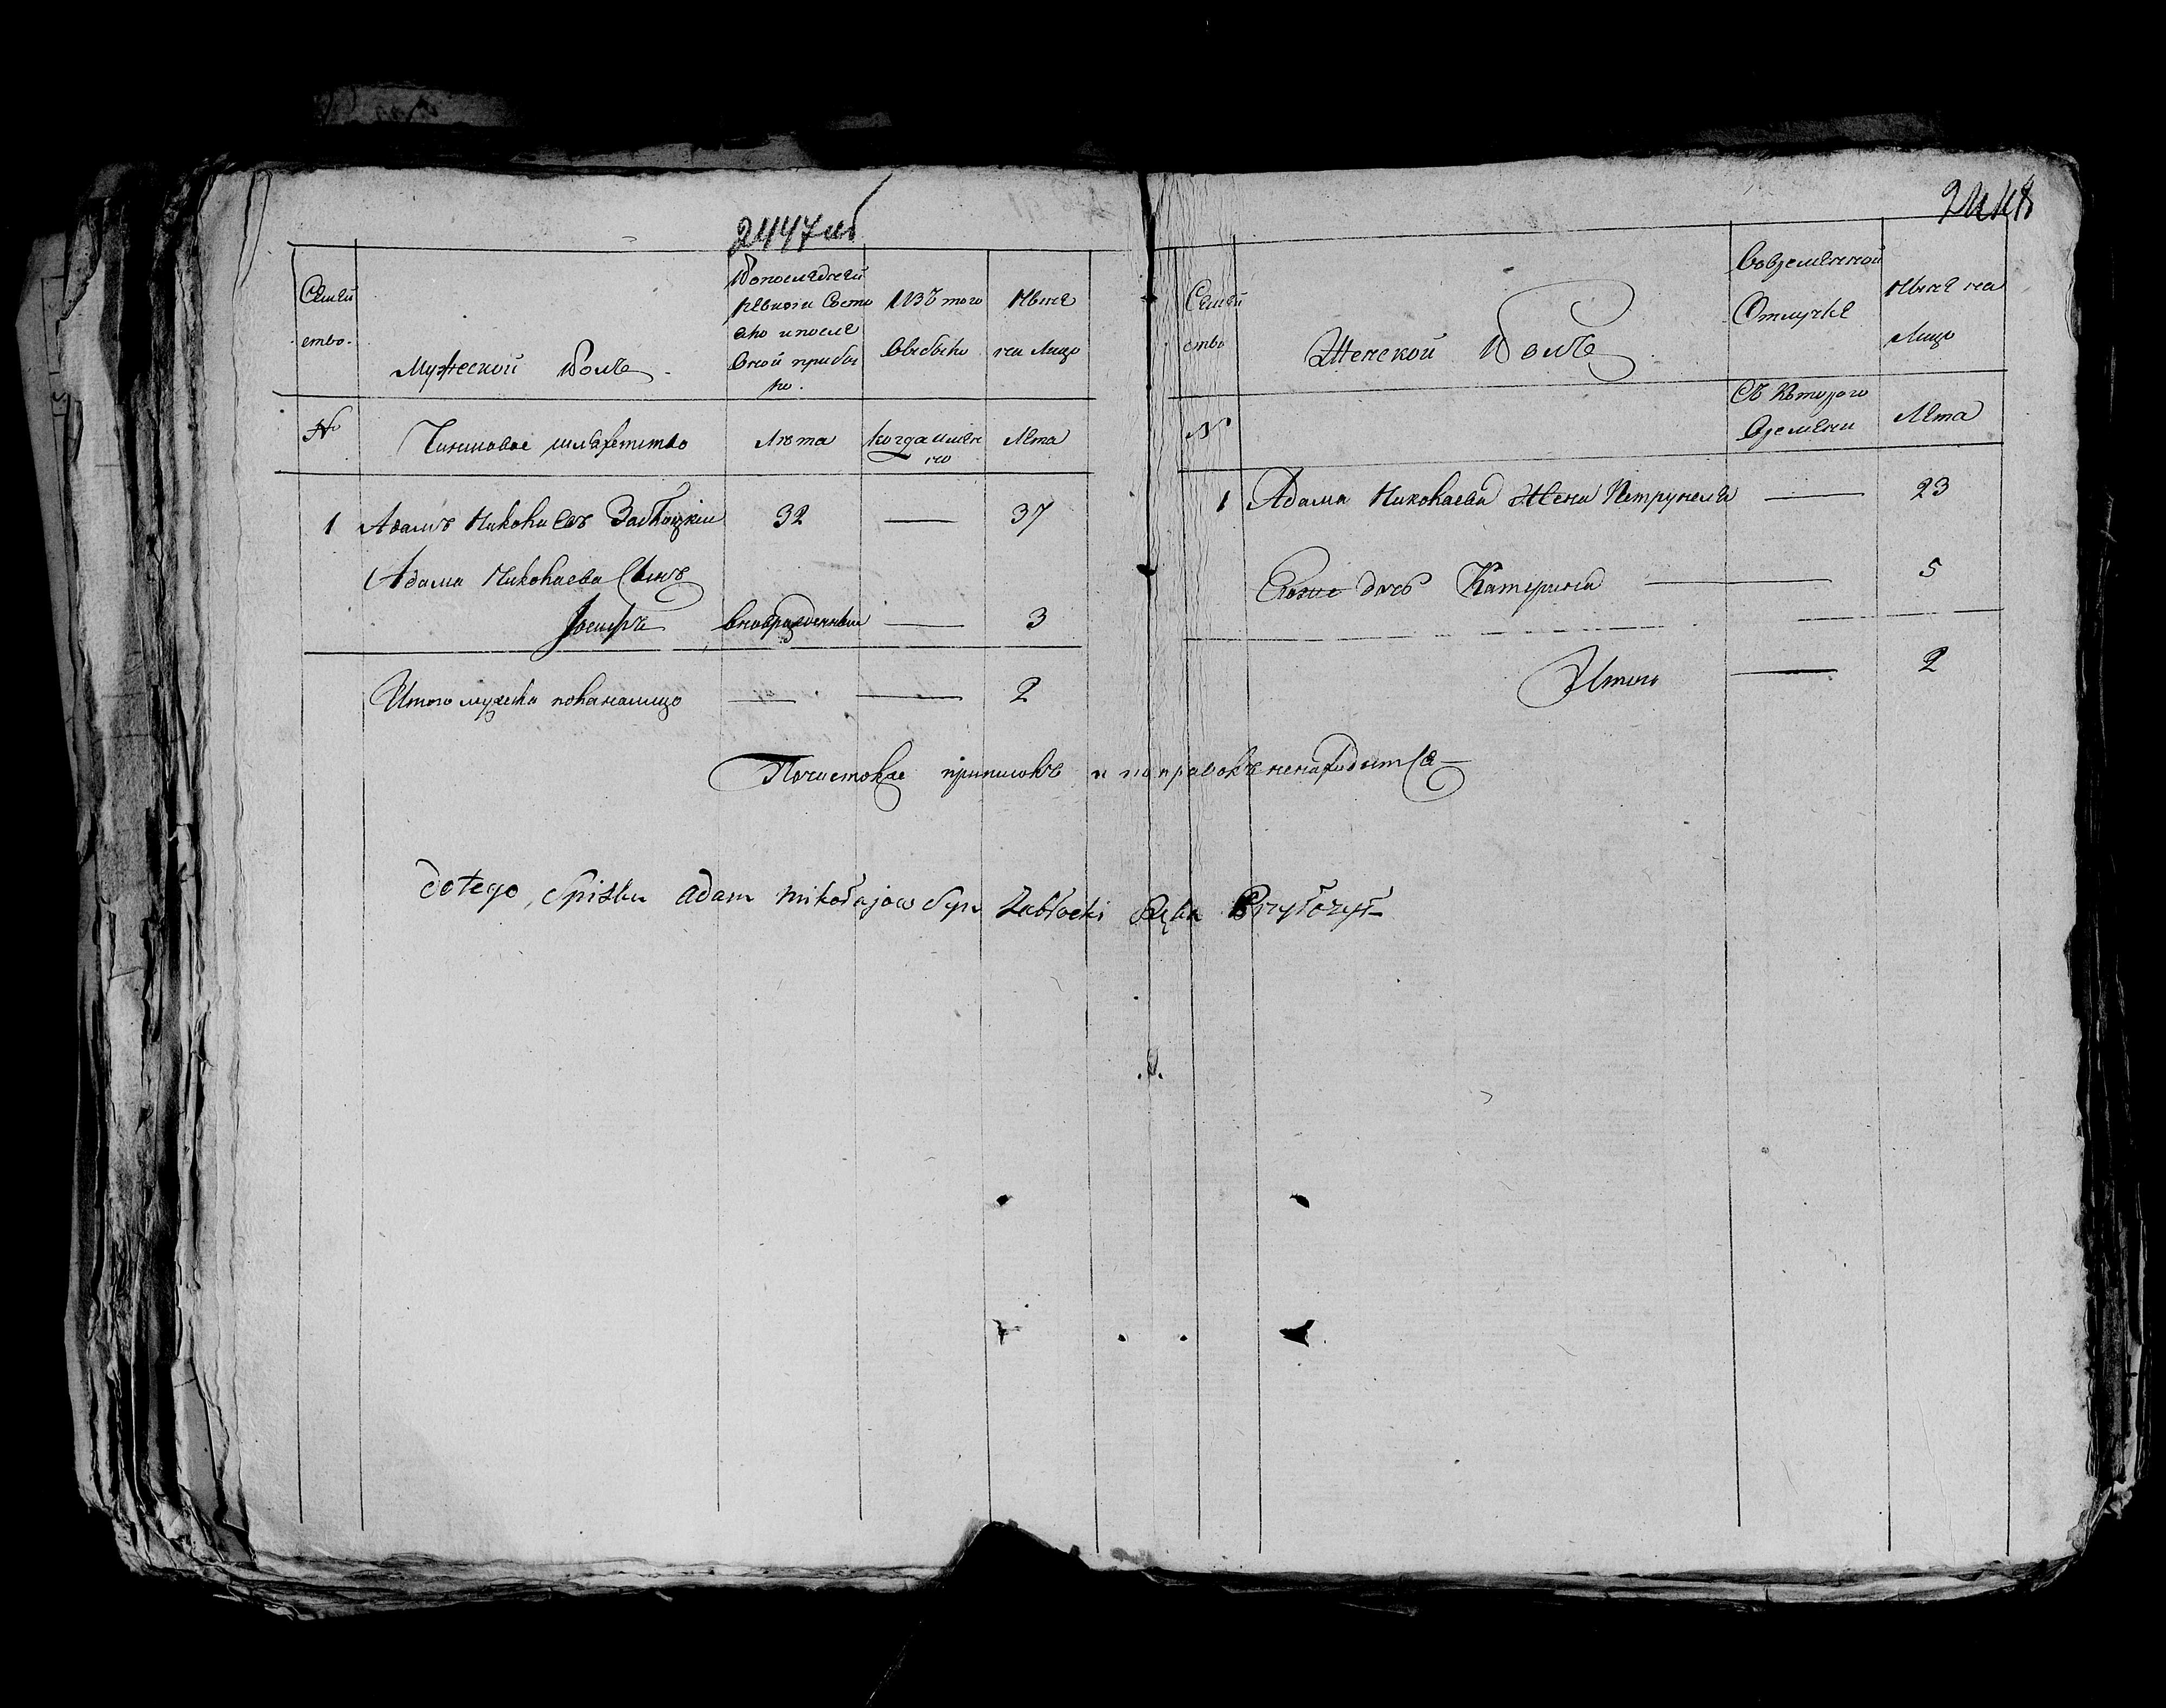 2447 об
Семей
ство.
Мужеской Полъ
Вопоследней
ревизіи Состо
яло ипосле
Оной прибы
ло.
ИЗЪ того
Выбыло
Ныне
на Лицо
№
Чиншовое шляхетство
Лѣта
Когда имян
но
Лета
1 Адамъ Николаевъ Заблоцкій 32 — 37
Адама Николаева Сынъ
Іосифъ вновьрожденный — 3
Итого мужеска полананалицо — — 2
2448
Семей
ство
Женской Полъ
Вовременной
Отлучке
Ныне на
Лицо
№
Съ Которого
Времени
Лета
1 Адама Николаева Жена Петрунеля — 23
дочь Катерина — 5
Итого — 2
Почисткое приписокъ и поправокъ ненаходится
dotego Spisku adam mikołajow Syn Zabłocki Rękę Przyłożył